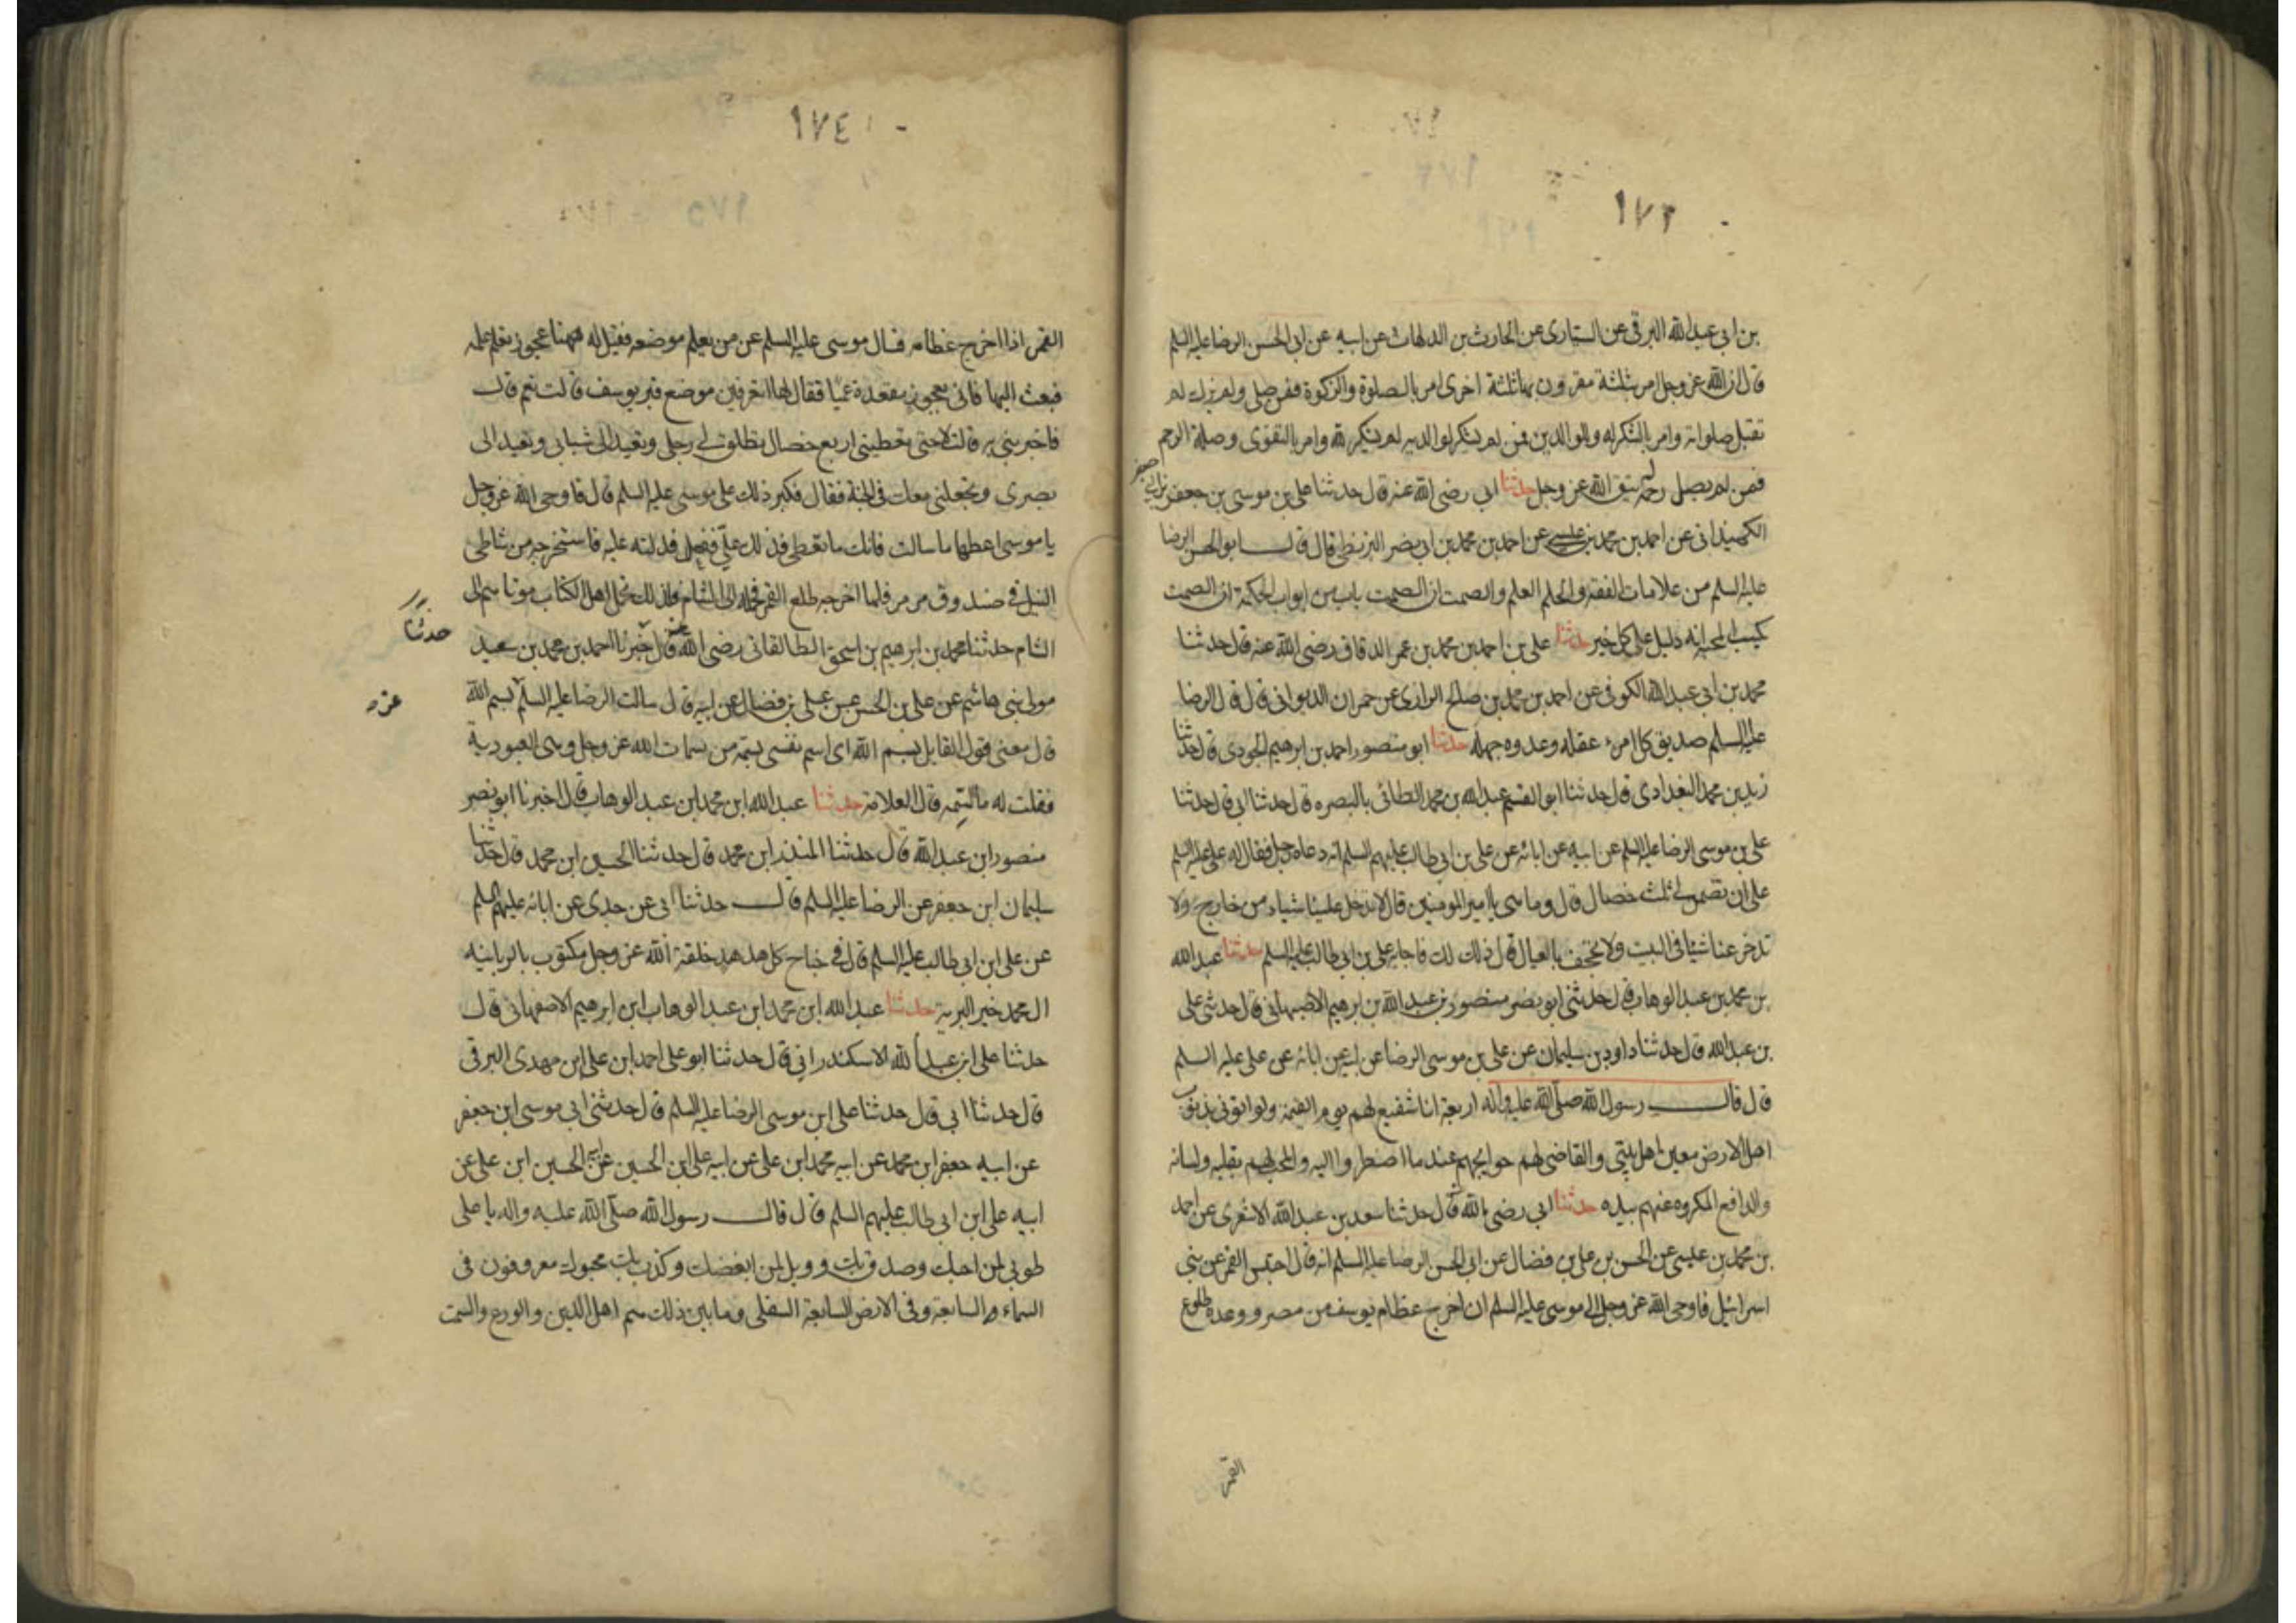 ١٧٣
بن ابى عبدالله البرقى عن السيارى عن الحارث بن الدلهاث عن ابيه عن ابى الحسن الرضا عليه السلم
قال ان الله عز وجل امر بثلثة مقرون بها ثلثة اخرى امر بالصلوة والزكوة فمن صلى ولم يزك لم
تقبل صلواته وامر بالشكر له وبالوالدين فمن لم يشكر لوالديه لم يشكر لله وامر بالتقوى وصلة الرحم
فمن لم يصل رحمه لم يتق الله عز وجل حدثنا ابى رضى الله عنه قال حدثنا على بن موسى بن جعفر بن ابى جعفر
الكميدانى عن احمد بن محمد بن عيسى عن احمد بن محمد بن ابى نصر البزنطى قال قال ابو الحسن الرضا
عليه السلم من علامات الفقه والحلم العلم والصمت ان الصمت باب من ابواب الحكمة ان الصمت
يكسب المحبة انه دليل على كل خير حدثنا على بن احمد بن محمد بن عمر الدقاق رضى الله عنه قال حدثنا
محمد بن ابى عبدالله الكوفى عن احمد بن محمد بن صالح الرازى عن حمران الديوانى قال قال الرضا
عليه السلم صديق كل امرء عقله وعدوه جهله حدثنا ابو منصور احمد بن ابرهيم الجودى قال حدثنا
زيد بن محمد البغدادى قال حدثنا ابو القسم عبدالله بن محمد الطائى بالبصره قال حدثنا ابى قال حدثنا
على بن موسى الرضا عليه السلم عن ابيه عن ابائه عن على بن ابى طالب عليهم السلم انه دعاه رجل فقال له على عليه السلم
على ان تضمن لى ثلث خصال قال وما هى يا امير المومنين قال لا تدخل علينا شياء من خارج ولا
تدخر عنا شيئا فى البيت ولا تجحف بالعيال قال ذلك لك فاجابه على بن ابى طالب عليه السلم حدثنا عبدالله
بن محمد بن عبد الوهاب قال حدثنى ابو نصر منصور بن عبدالله بن ابرهيم الاصبهانى قال حدثنى على
بن عبدالله قال حدثنا داود بن سليمان عن على بن موسى الرضا عن ابيه عن ابائه عن على عليه السلم
قال قال رسول الله صلى الله عليه واله اربعة انا شفيع لهم يوم القيمة ولو اتونى بذنوب
اهل الارض معين اهل بيتى والقاضى لهم حوايجهم عند ما اضطروا اليه والمحب لهم بقلبه ولسانه
والدافع المكروه عنهم بيده حدثنا ابى رضى الله قال حدثنا سعد بن عبدالله الاشعرى عن احمد
بن محمد بن عيسى عن الحسن بن على بن فضال عن ابى الحسن الرضا عليه السلم انه قال احتبس القمر عن بنى
اسرائيل فاوحى الله عز وجل الى موسى عليه السلم ان اخرج عظام يوسف من مصر ووعده طلوع
القمر
١٧٤
القمر اذا اخرج عظامه فسال موسى عليه السلم عن من يعلم موضعه فقيل له ههنا عجوز تعلم علمه
فبعث اليها فاتى بعجوز مقعدة عميا فقال لها اتعرفين موضع قبر يوسف قالت نعم قال
فاخبرينى به قالت لا حتى تعطينى اربع خصال تطلق لى رجلى وتعيد الى شبابى وتعيد الى
بصرى وتجعلنى معك فى الجنة فقال فكبر ذلك على موسى عليه السلم قال فاوحى الله عز وجل
يا موسى اعطها ما سالت فانك ما تعطى فذلك على ففعل فدلته عليه فاستخرجه من شاطى
النيل فى صندوق مرمر فلما اخرجه طلع القمر فحمله الى الشام فلذلك تحمل اهل الكتاب موتاهم الى
الشام حدثنا محمد بن ابرهيم بن اسحق الطالقانى رضى الله عنه قال خبرنا احمد بن محمد بن سعيد
حدثنا
مولى بنى هاشم عن على بن الحسن عن على بن فضال عن ابيه قال سالت الرضا عليه السلم بسم الله
عن
قال معنى قول القايل بسم الله اى اسم نفسى بسمة من سمات الله عز وجل وهى العبودية
فقلت له ما السمه قال العلامة حدثنا عبدالله ابن محمد ابن عبد الوهاب قال اخبرنا ابو نصر
منصور ابن عبدالله قال حدثنا المنذر ابن محمد قال حدثنا الحسين ابن محمد قال حدثنا
سليمان ابن جعفر عن الرضا عليه السلم قال حدثنا ابى عن جدى عن ابائه عليهم السلم
عن على ابن ابى طالب عليه السلم قال فى جناح كل هدهد خلقة الله عز وجل مكتوب بالريانيه
ال محمد خير البرية حدثنا عبدالله ابن محمد ابن عبد الوهاب ابن ابرهيم الاصفهانى قال
حدثنا على ابن عبدالله الاسكندرانى قال حدثنا ابو على احمد ابن على ابن مهدى البرقى
قال حدثنا ابى قال حدثنا على ابن موسى الرضا عليه السلم قال حدثنى ابى موسى ابن جعفر
عن ابيه جعفر ابن محمد عن ابيه محمد ابن على عن ابيه على ابن الحسين عن ابيه الحسين ابن على عن
ابيه على ابن ابى طالب عليهم السلم قال قال رسول الله صلى الله عليه واله يا على
طوبى لمن احبك وصدق بك وويل لمن ابغضك وكذب بك محبوك معروفون فى
السماء السابعة وفى الارض السابعة السفلى وما بين ذلك هم اهل الدين والورع والسمت